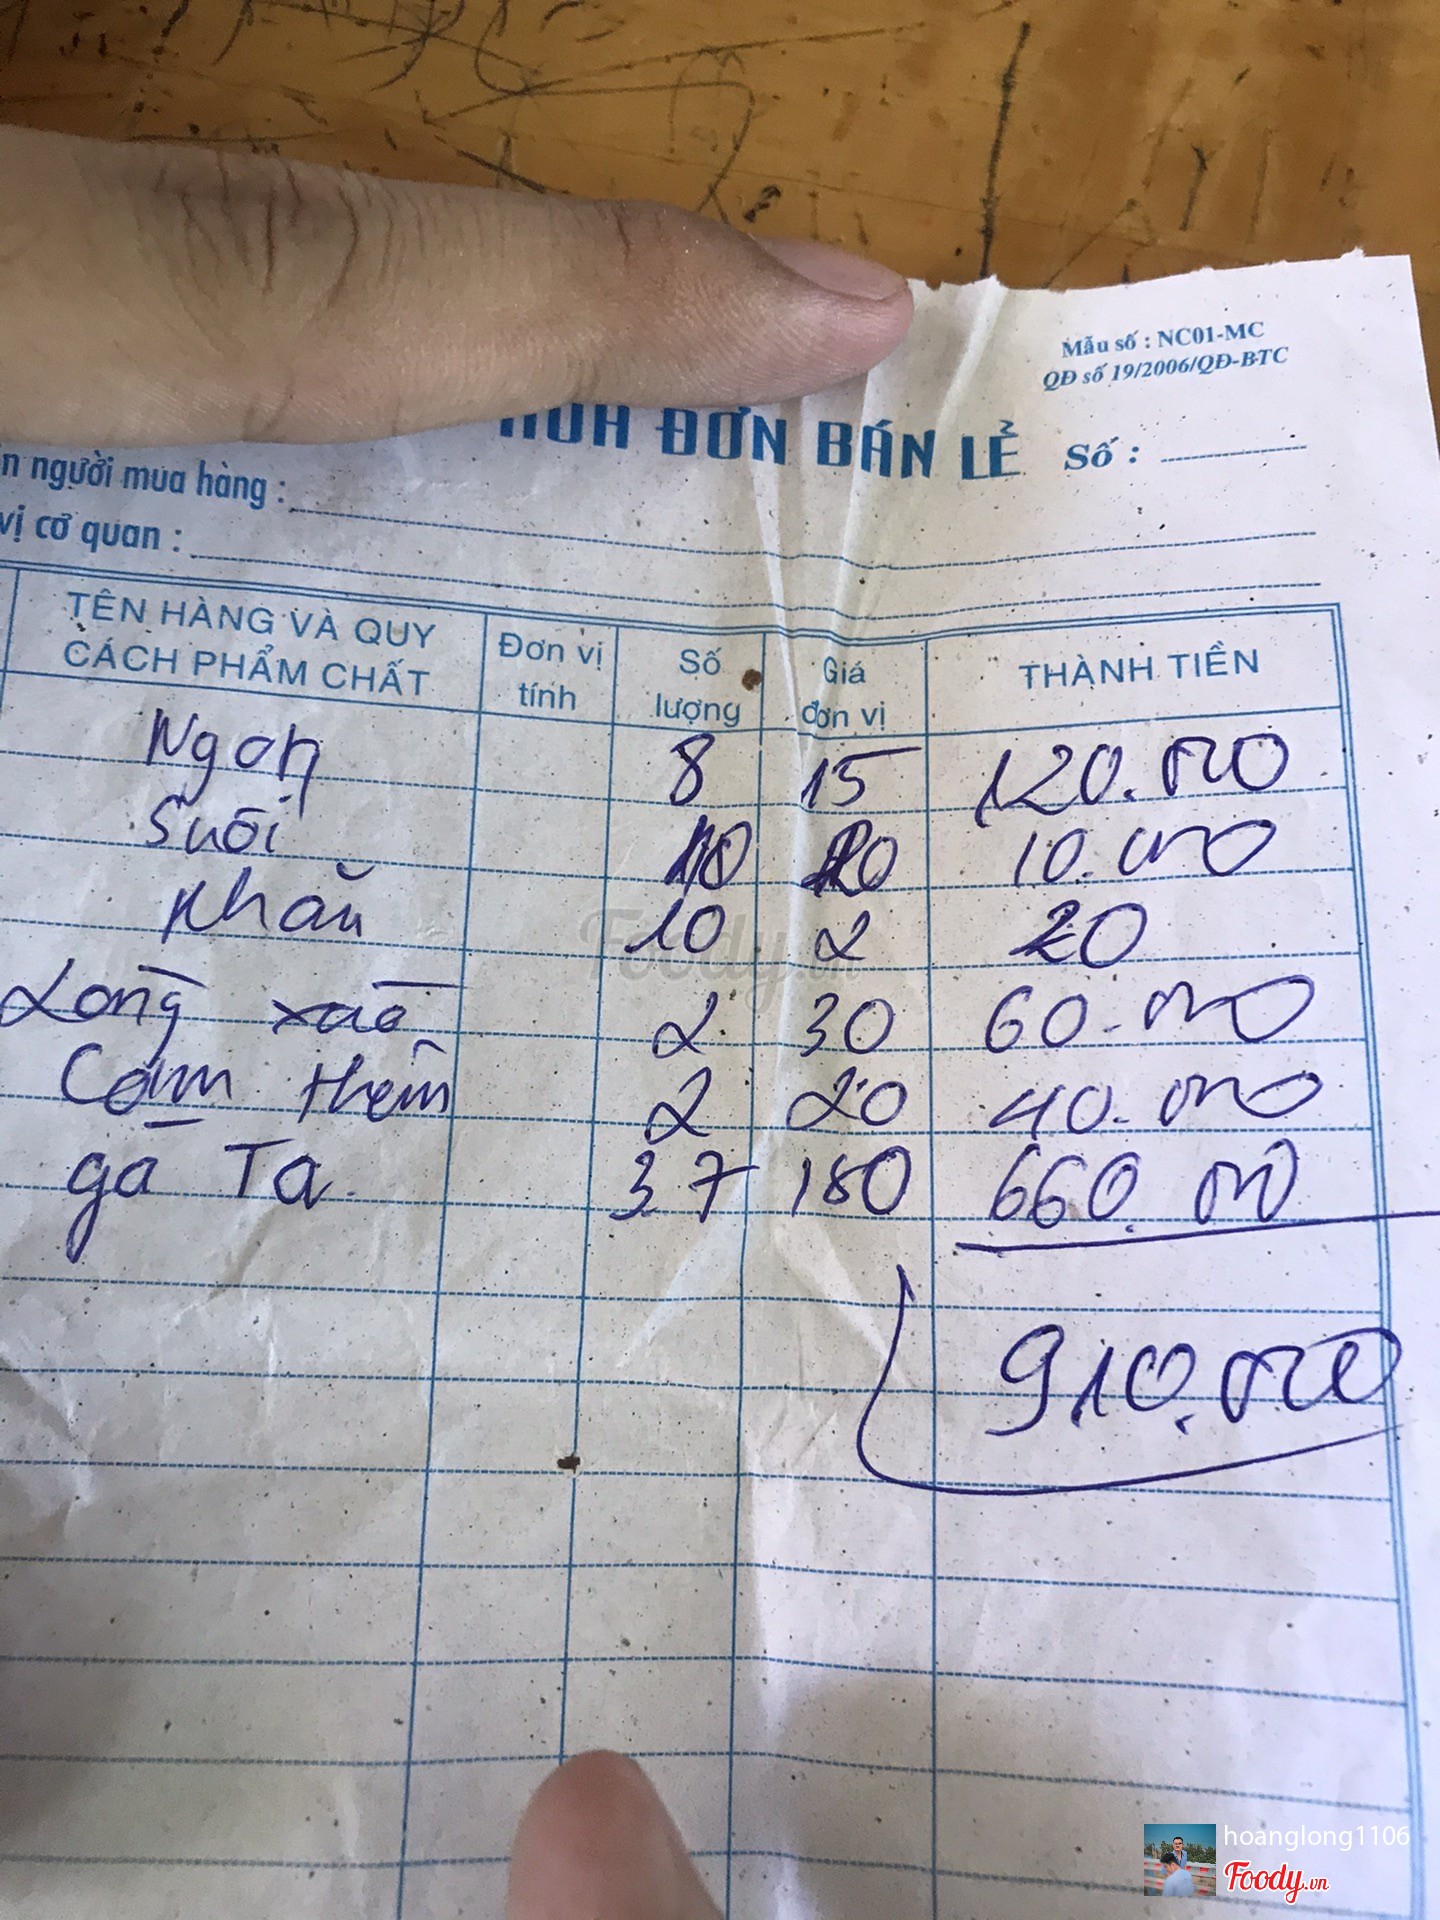 Mẫu số : NC01-MC
QĐ số 19/2006/QĐ-BTC
HÓA ĐƠN BÁN LẺ Số :
người mua hàng :
vị cơ quan :
TÊN HÀNG VÀ QUY CÁCH PHẨM CHẤT Đơn vị tính Số lượng Giá đơn vị THÀNH TIỀN
Ngon 8 15 120.000
Suối 10 10.000
Khăn 10 2 20
Lòng xào 2 30 60.000
Cơm thêm 2 20 40.000
gà Ta 3.7 180 660.000
910.000
Foody.vn
hoanglong1106
Foody.vn